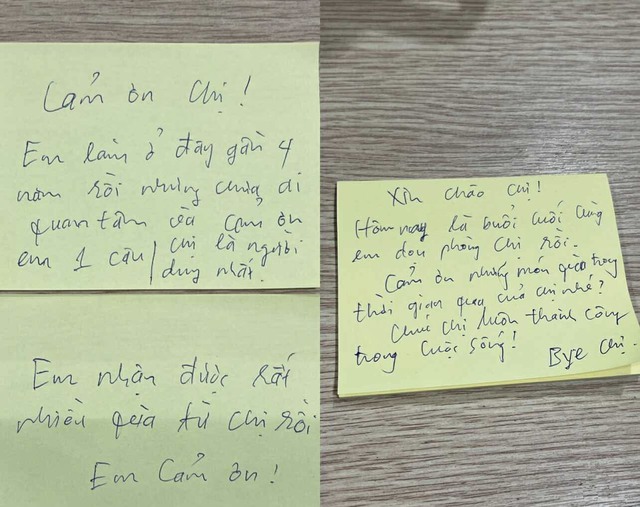 Cảm ơn chị!
Em làm ở đây gần 4
năm rồi nhưng chưa ai
quan tâm và cảm ơn
em 1 câu / chị là người
duy nhất.
Em nhận được rất
nhiều qùa từ chị rồi
Em Cảm ơn!
Xin chào chị!
Hôm nay là buổi cuối cùng
em dọn phòng chị rồi.
Cảm ơn những món qùa trong
thời gian qua của chị nhé?
Chúc chị luôn thành công
trong cuộc sống!
Bye chị.